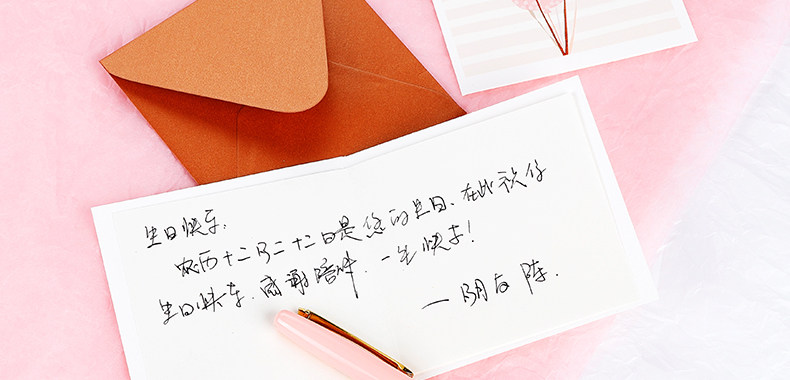 生日快乐,
农历十二月二十二日是您的生日、在此祝你
生日快乐.感谢陪伴.一生快乐!
— 朋友 陈.